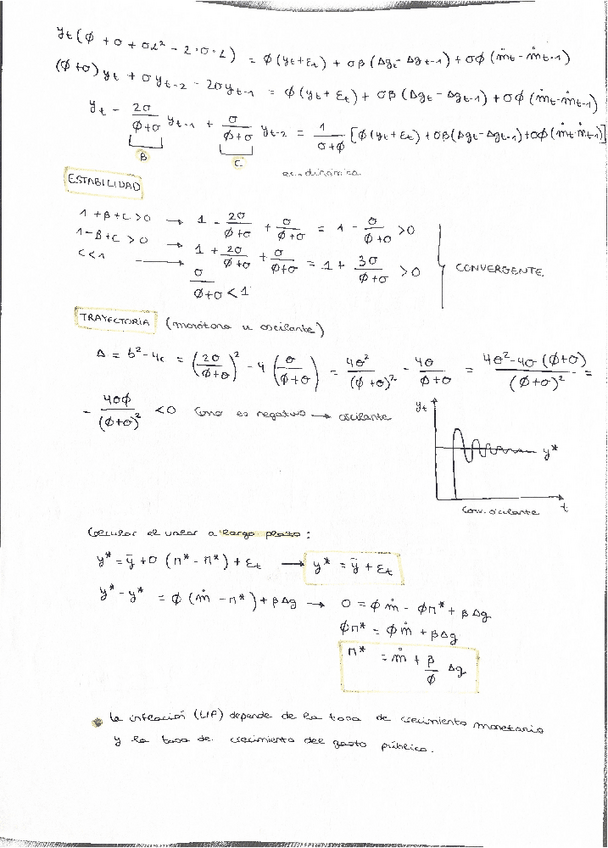 yt (ϕ + σ + σL² - 2·σ·L) = ϕ(yt + εt) + σβ (Δgt - Δgt-1) + σϕ (ṁt - ṁt-1)
(ϕ+σ) yt + σ yt-2 - 2σ yt-1 = ϕ (yt + εt) + σβ (Δgt - Δgt-1) + σϕ (ṁt - ṁt-1)
yt - 2σ/(ϕ+σ) yt-1 + σ/(ϕ+σ) yt-2 = 1/(σ+ϕ) [ϕ(yt+εt) + σβ(Δgt - Δgt-1) + σϕ(ṁt - ṁt-1)]
B C
ec. dinámica
ESTABILIDAD
1 + B + C > 0 → 1 - 2σ/(ϕ+σ) + σ/(ϕ+σ) = 1 - σ/(ϕ+σ) > 0
1 - B + C > 0 → 1 + 2σ/(ϕ+σ) + σ/(ϕ+σ) = 1 + 3σ/(ϕ+σ) > 0
C < 1 → σ/(ϕ+σ) < 1
CONVERGENTE
TRAYECTORIA (monótona u oscilante)
Δ = b² - 4c = (2σ/(ϕ+σ))² - 4 (σ/(ϕ+σ)) = 4σ²/(ϕ+σ)² - 4σ/(ϕ+σ) = 4σ² - 4σ (ϕ+σ)/(ϕ+σ)² =
- 4σϕ/(ϕ+σ)² < 0 Como es negativo → oscilante
yt
y*
t
Conv. oscilante
Calcular el valor a largo plazo:
y* = ȳ + σ (π* - π*) + εt → y* = ȳ + εt
y* - y* = ϕ (ṁ - π*) + β Δg → 0 = ϕ ṁ - ϕπ* + β Δg
ϕπ* = ϕ ṁ + β Δg
π* = ṁ + β/ϕ Δg
La inflación (L/P) depende de la tasa de crecimiento monetario
y la tasa de crecimiento del gasto público.